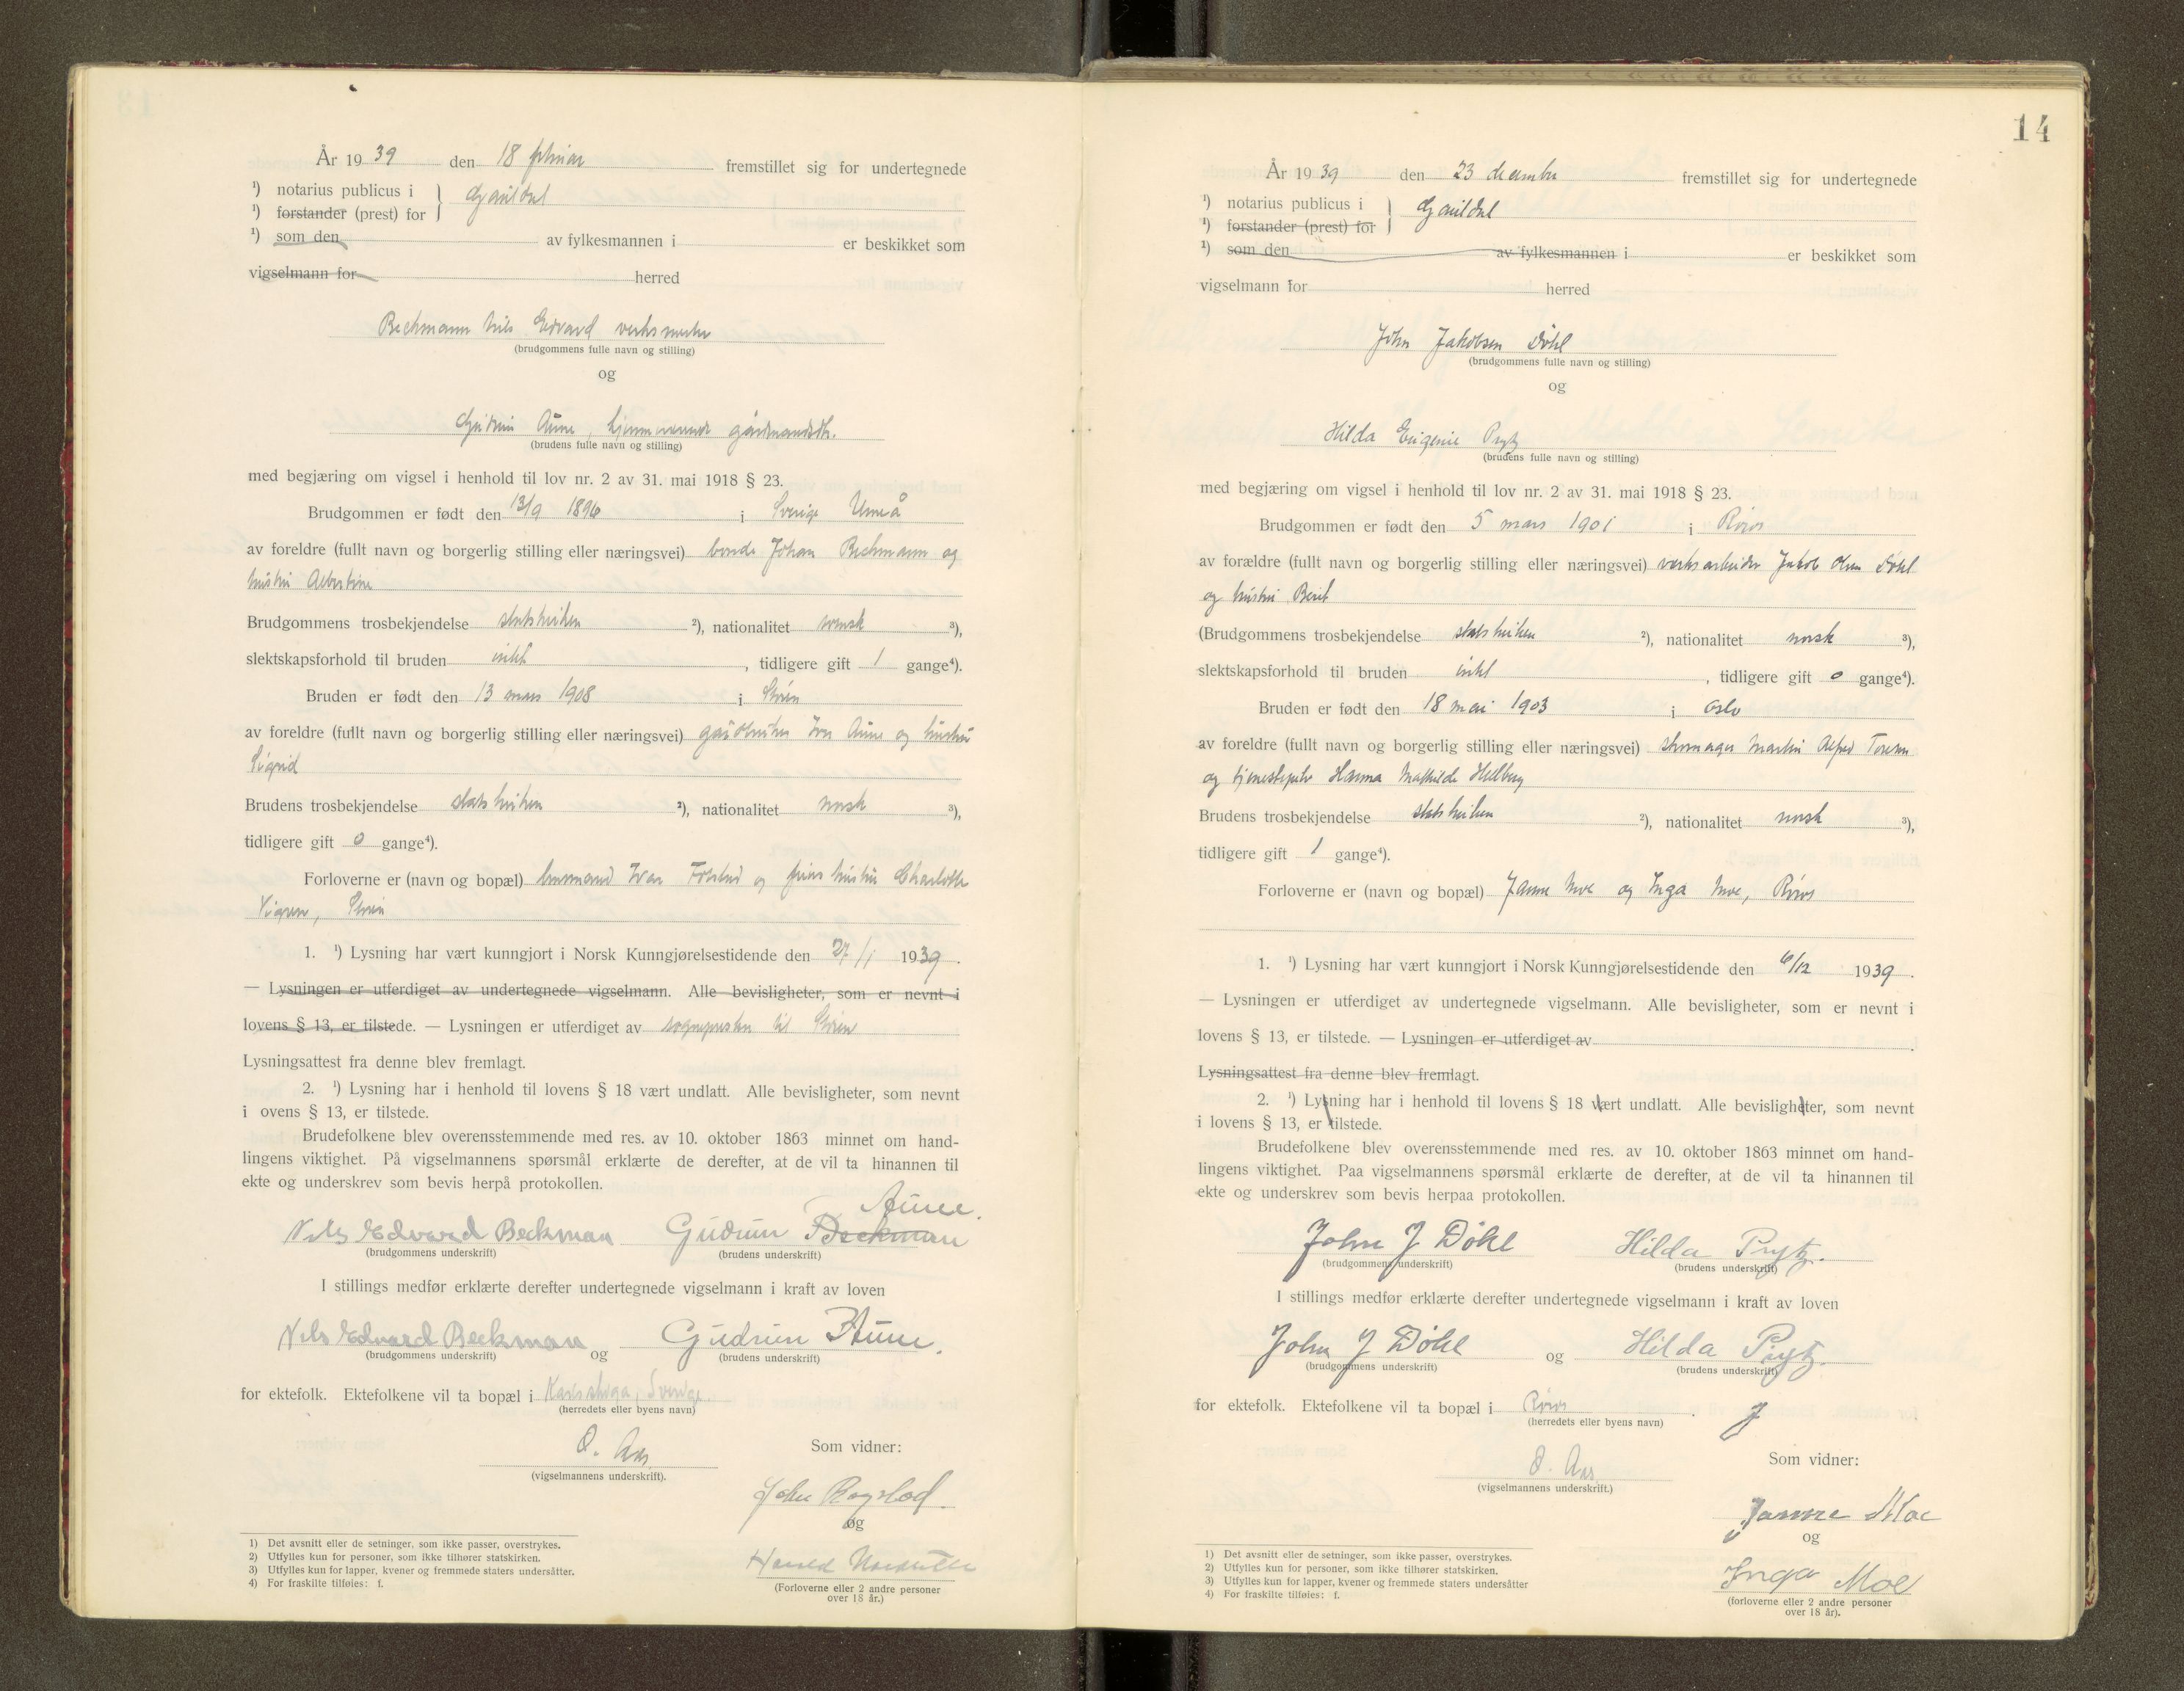 År 19 39 den 18 februar fremstillet sig for undertegnede
¹) notarius publicus i } Gauldal
¹) forstander (prest) for
¹) som den av fylkesmannen i er beskikket som
vigselmann for herred
Beckmann Nils Edvard verksmester
(brudgommens fulle navn og stilling)
og
Gudrun Aune, hjemmeværende gårdmandsdtr.
(brudens fulle navn og stilling)
med begjæring om vigsel i henhold til lov nr. 2 av 31. mai 1918 § 23.
Brudgommen er født den 13/9 1896 i Sverige Umeå
av foreldre (fullt navn og borgerlig stilling eller næringsvei) bonde Johan Beckmann og
hustru Albertine
Brudgommens trosbekjendelse statskirken ²), nationalitet svensk ³),
slektskapsforhold til bruden intet, tidligere gift 1 gange⁴).
Bruden er født den 13 mars 1908 i Støren
av foreldre (fullt navn og borgerlig stilling eller næringsvei) gårdbruker Iver Aune og hustru
Sigrid
Brudens trosbekjendelse statskirken ²), nationalitet norsk ³),
tidligere gift 0 gange⁴).
Forloverne er (navn og bopæl) Ivar og frue hustru Charlotte
Støren
1. ¹) Lysning har vært kunngjort i Norsk Kunngjørelsestidende den 27/1 1939.
— Lysningen er utferdiget av undertegnede vigselmann. Alle bevisligheter, som er nevnt i
lovens § 13, er tilstede. — Lysningen er utferdiget av sognepresten til Støren
Lysningsattest fra denne blev fremlagt.
2. ¹) Lysning har i henhold til lovens § 18 vært undlatt. Alle bevisligheter, som nevnt
i ovens § 13, er tilstede.
Brudefolkene blev overensstemmende med res. av 10. oktober 1863 minnet om hand-
lingens viktighet. På vigselmannens spørsmål erklærte de derefter, at de vil ta hinannen til
ekte og underskrev som bevis herpå protokollen.
Aune.
Nils Edvard Beckman Gudrun Beckman
(brudgommens underskrift) (brudens underskrift)
I stillings medfør erklærte derefter undertegnede vigselmann i kraft av loven
Nils Edvard Beckman og Gudrun Aune.
(brudgommens underskrift) (brudens underskrift)
for ektefolk. Ektefolkene vil ta bopæl i Karlskoga, Sverige
(herredets eller byens navn)
O. Aas
(vigselmannens underskrift).
Som vidner:
John Rogstad.
og
Harald
(Forloverne eller 2 andre personer
over 18 år.)
1) Det avsnitt eller de setninger, som ikke passer, overstrykes.
2) Utfylles kun for personer, som ikke tilhører statskirken.
3) Utfylles kun for lapper, kvener og fremmede staters undersåtter.
4) For fraskilte tilføies: f.
14
År 19 39 den 23 desember fremstillet sig for undertegnede
¹) notarius publicus i } Gauldal
¹) forstander (prest) for
¹) som den av fylkesmannen i er beskikket som
vigselmann for herred
John Jakobsen Døhl
(brudgommens fulle navn og stilling)
og
Hilda Eugenie Prytz
(brudens fulle navn og stilling)
med begjæring om vigsel i henhold til lov nr. 2 av 31. mai 1918 § 23.
Brudgommen er født den 5 mars 1901 i Røros
av forældre (fullt navn og borgerlig stilling eller næringsvei) verksarbeider Jakob Olsen Døhl
og hustru Berit
(Brudgommens trosbekjendelse statskirken ²), nationalitet norsk ³),
slektskapsforhold til bruden intet, tidligere gift 0 gange⁴).
Bruden er født den 18 mai 1903 i Oslo
av foreldre (fullt navn og borgerlig stilling eller næringsvei) skomager Martin Alfred Toresen
og tjenestepike Hanna Mathilde Hellberg
Brudens trosbekjendelse statskirken ²), nationalitet norsk ³),
tidligere gift 1 gange⁴).
Forloverne er (navn og bopæl) Janne Moe og Inga Moe, Røros
1. ¹) Lysning har vært kunngjort i Norsk Kunngjørelsestidende den 6/12 1939.
— Lysningen er utferdiget av undertegnede vigselmann. Alle bevisligheter, som er nevnt i
lovens § 13, er tilstede. — Lysningen er utferdiget av
Lysningsattest fra denne blev fremlagt.
2. ¹) Lysning har i henhold til lovens § 18 vært undlatt. Alle bevisligheter, som nevnt
i lovens § 13, er tilstede.
Brudefolkene blev overensstemmende med res. av 10. oktober 1863 minnet om hand-
lingens viktighet. Paa vigselmannens spørsmål erklærte de derefter, at de vil ta hinannen til
ekte og underskrev som bevis herpaa protokollen.
John J Døhl Hilda Prytz.
(brudgommens underskrift) (brudens underskrift)
I stillings medfør erklærte derefter undertegnede vigselmann i kraft av loven
John J Døhl og Hilda Prytz.
(brudgommens underskrift) (brudens underskrift)
for ektefolk. Ektefolkene vil ta bopæl i Røros.
(herredets eller byens navn)
J
O. Aas
(vigselmannens underskrift.)
Som vidner:
Janne Moe
og
Inga Moe
(forloverne eller 2 andre personer
over 18 år).
1) Det avsnitt eller de setninger, som ikke passer, overstrykes.
2) Utfylles kun for personer, som ikke tilhører statskirken.
3) Utfylles kun for lapper, kvener og fremmede staters undersåtter
4) For fraskilte tilføies: f.